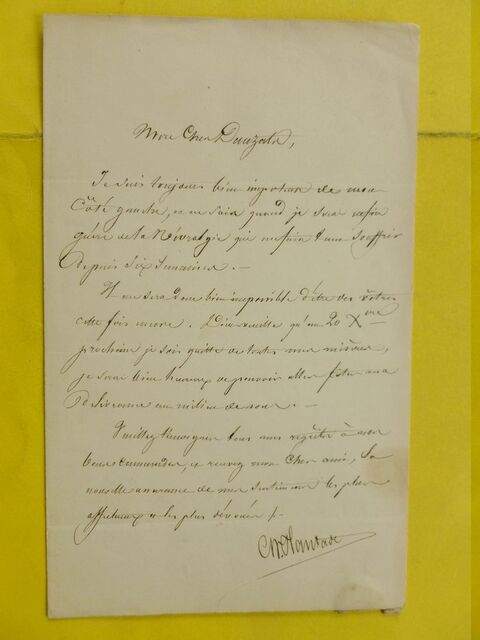 Mon Cher Dauzats,
Je suis toujours bien impotent de mon
Côté gauche, et ne sais quand je serai enfin
guéri de la Névralgie qui me fait tant souffrir
depuis six semaines. —
Il me sera donc bien impossible d'être des vôtres
cette fois encore. Dieu veuille qu'au 20 Xbre
prochain je sois quitte de toutes mes misères,
je serai bien heureux de pouvoir aller fêter ma
délivrance au milieu de vous. —
Veuillez témoigner tous mes regrets à nos
bons camarades, et recevez mon Cher ami, la
nouvelle assurance de mes sentiments les plus
affectueux et les plus dévoués /.